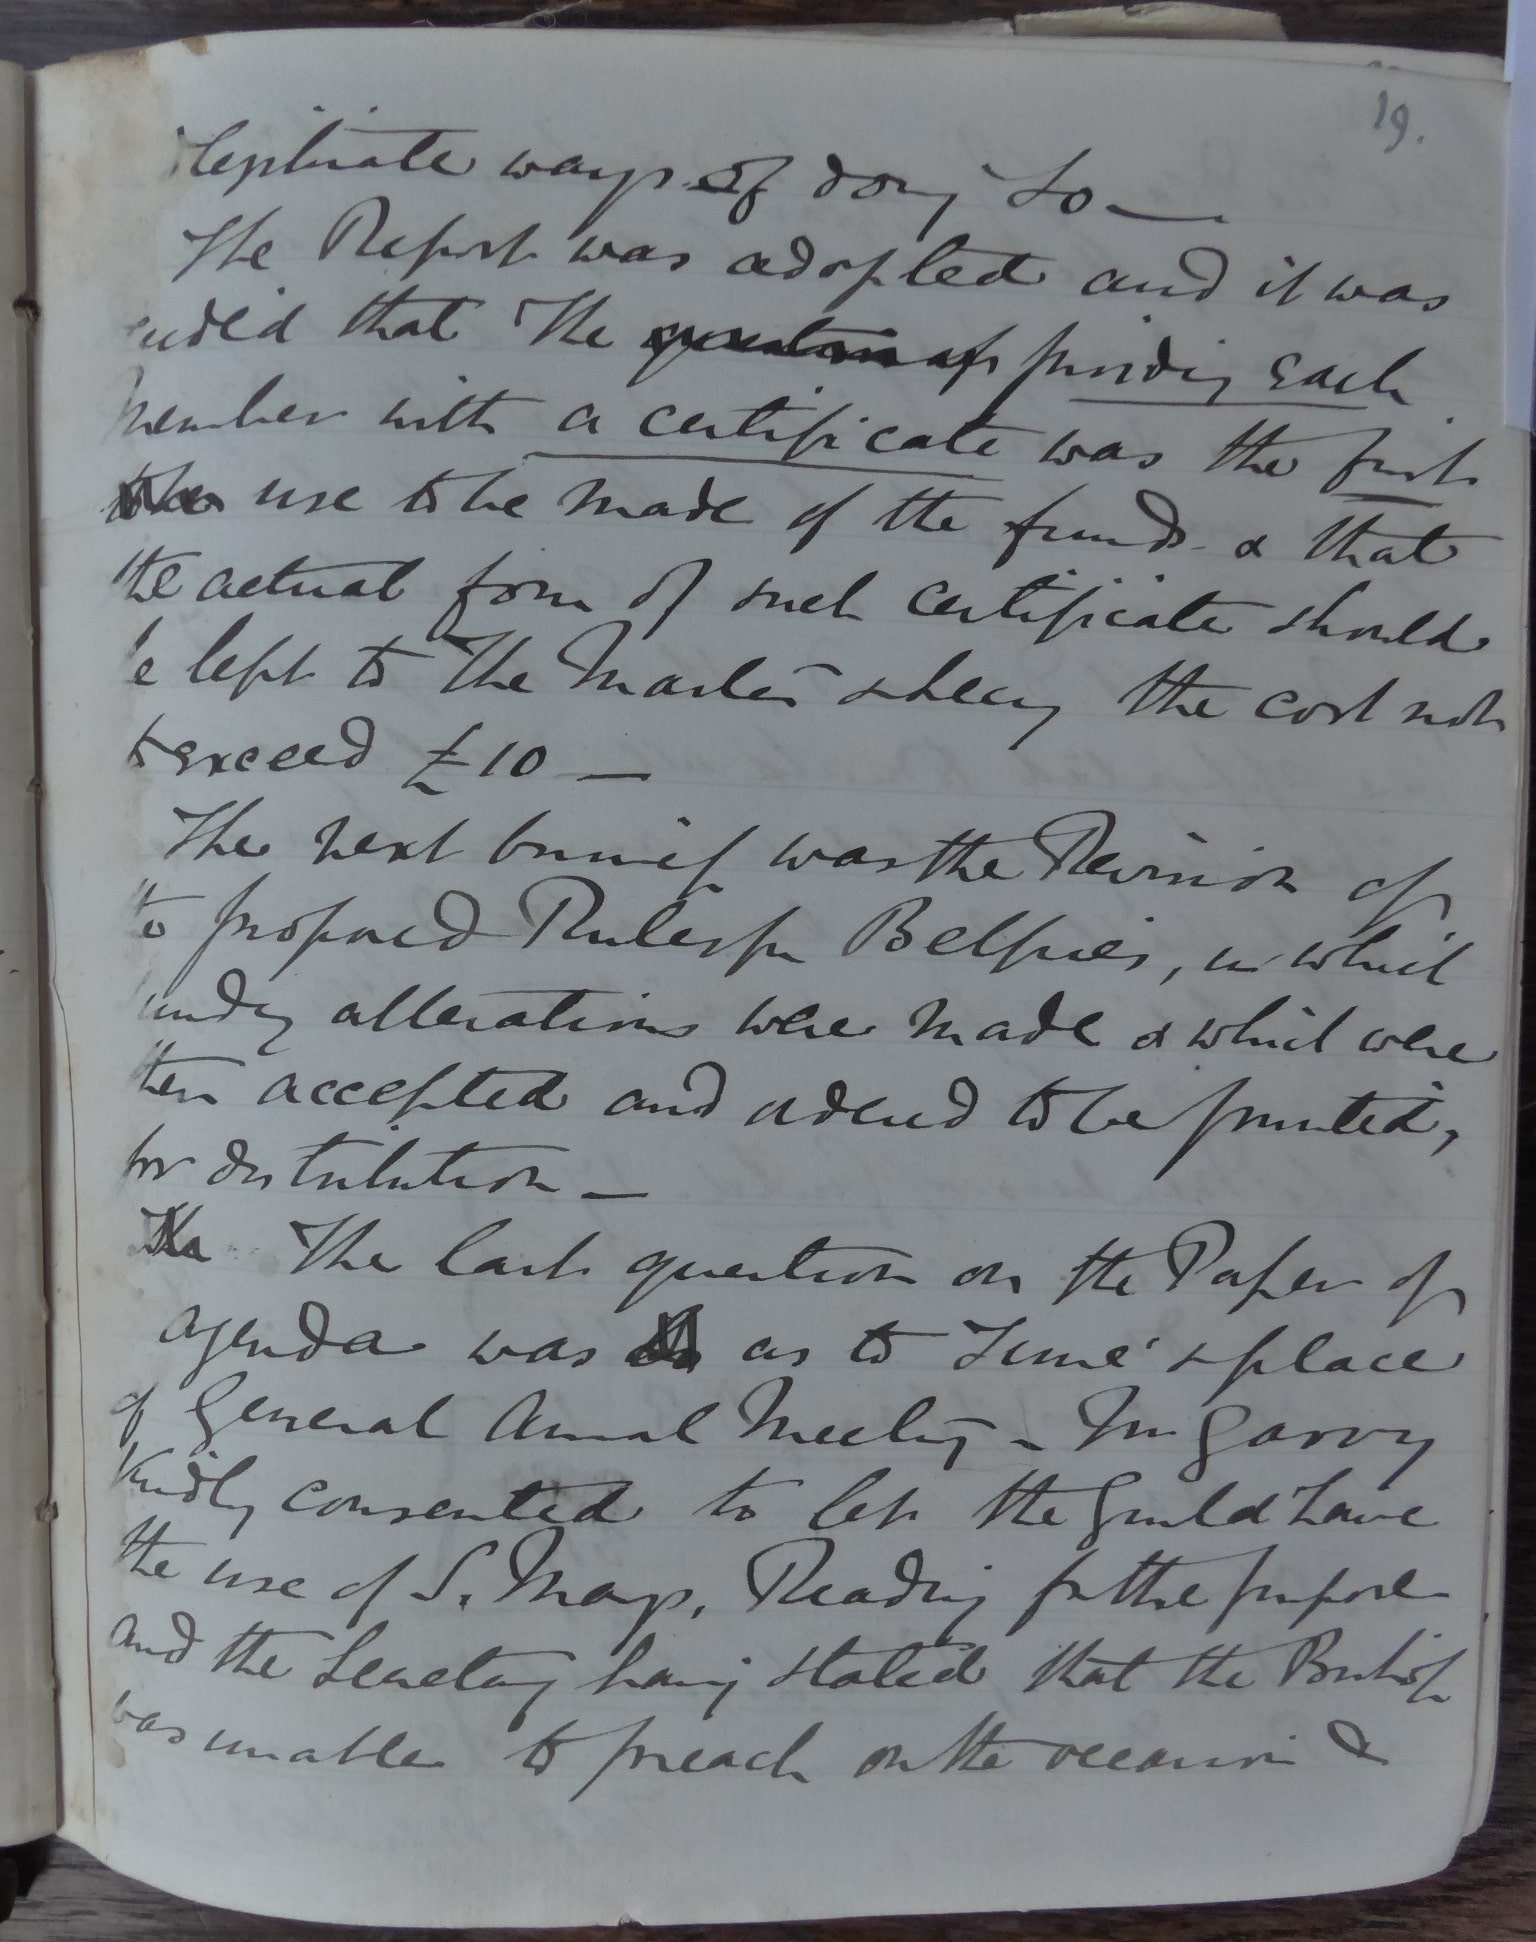 19.
legitimate ways of doing so —
The Report was adopted and it was
decided that the question of providing each
member with a certificate was the first
use to be made of the funds & that
the actual form of such certificate should
be left to the Master & Secy the cost not
to exceed £10 —
The next business was the Revision of
to proposed Rules for Belfries, in which
sundry alterations were made & which were
then accepted and ordered to be printed,
for distribution —
The The last question on the Paper of
agenda was as to Time & place
of General Annual Meeting – Mr Garry
kindly consented to let the Guild have
the use of S. Marys, Reading for the purpose
and the Secretary having stated that the Bishop
was unable to preach on the occasion &